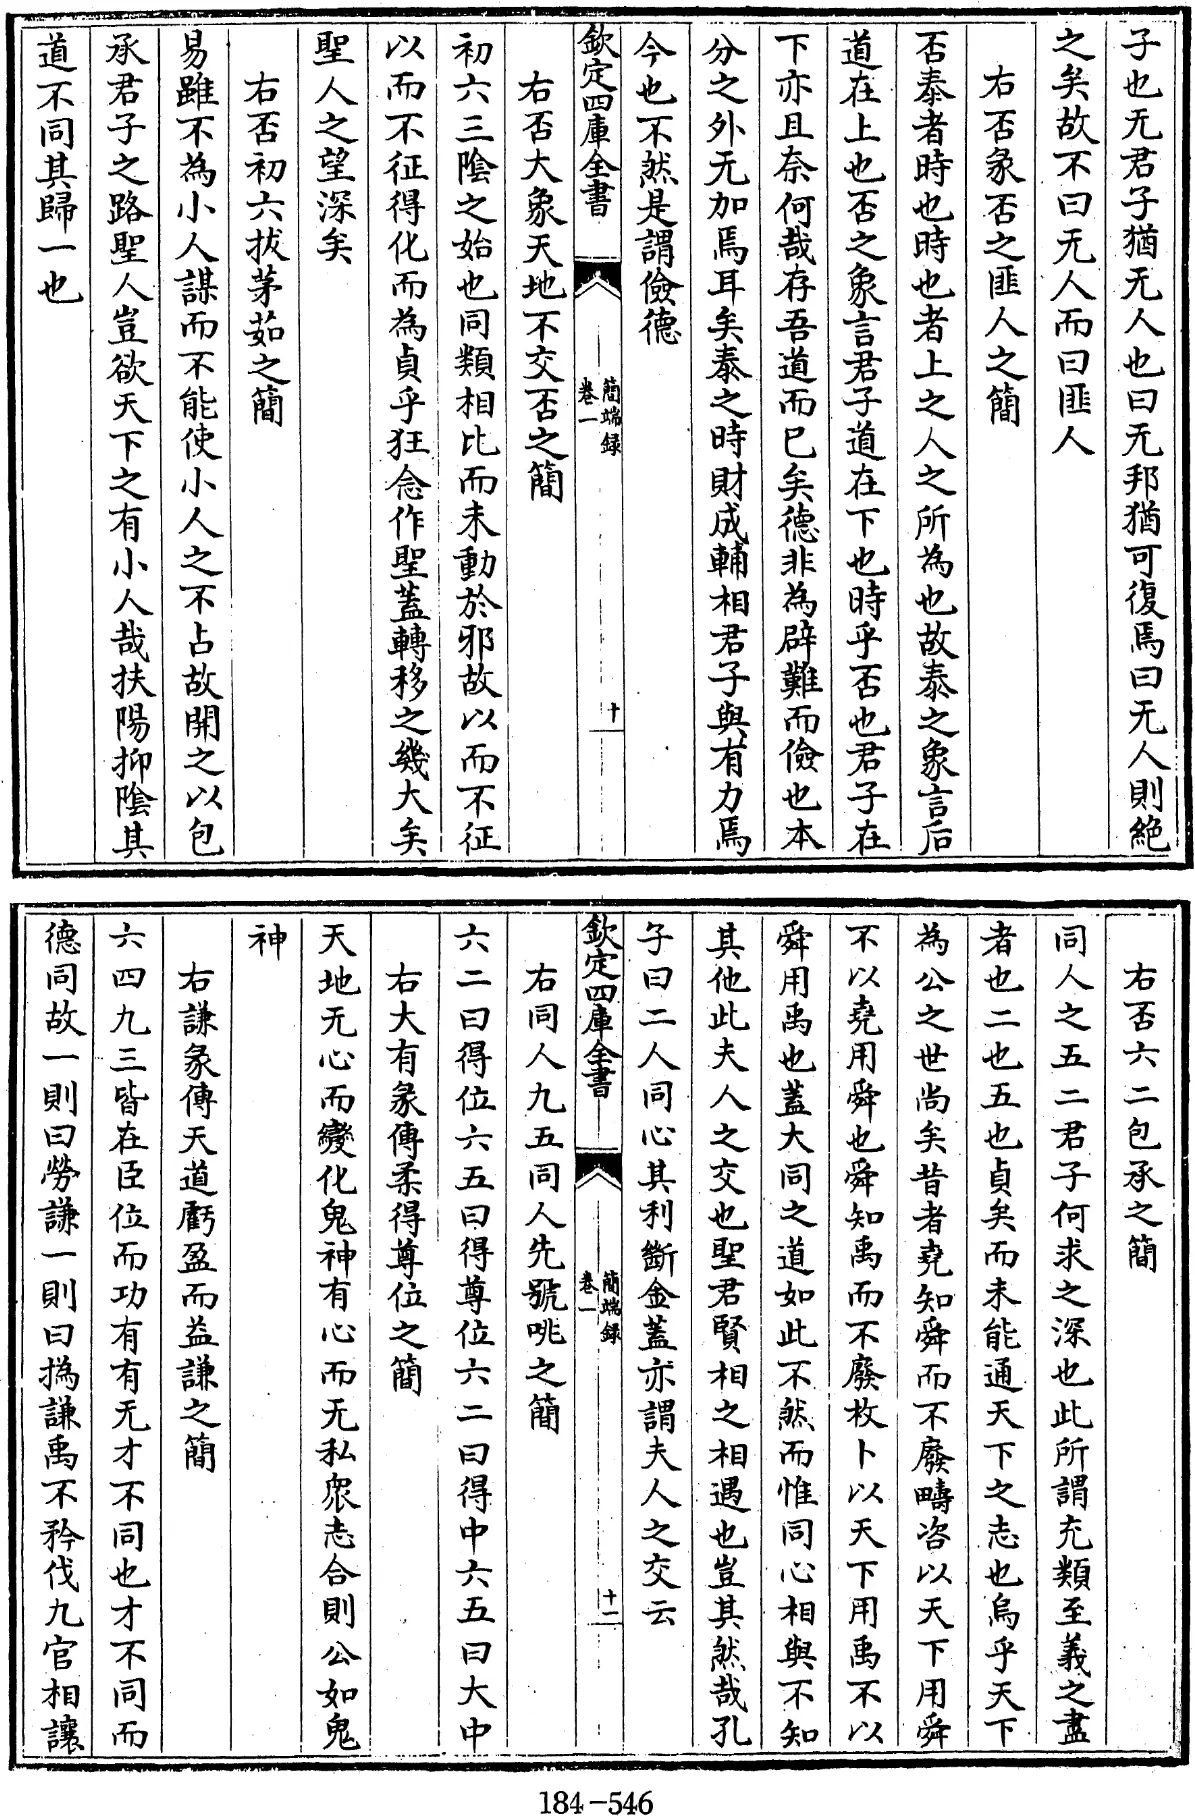 子也无君子猶无人也曰无邦猶可復焉曰无人則絶
之矣故不曰无人而曰匪人
右否彖否之匪人之簡
否泰者時也時也者上之人之所為也故泰之象言后
道在上也否之象言君子道在下也時乎否也君子在
下亦且奈何哉存吾道而已矣德非為辟難而儉也本
分之外无加焉耳矣泰之時財成輔相君子與有力焉
今也不然是謂儉德
欽定四庫全書
簡端録
卷一
十
右否大象天地不交否之簡
初六三陰之始也同類相比而未動於邪故以而不征
以而不征得化而為貞乎狂念作聖蓋轉移之幾大矣
聖人之望深矣
右否初六拔茅茹之簡
易雖不為小人謀而不能使小人之不占故開之以包
承君子之路聖人豈欲天下之有小人哉扶陽抑陰其
道不同其歸一也
右否六二包承之簡
同人之五二君子何求之深也此所謂充類至義之盡
者也二也五也貞矣而未能通天下之志也烏乎天下
為公之世尚矣昔者堯知舜而不廢疇咨以天下用舜
不以堯用舜也舜知禹而不廢枚卜以天下用禹不以
舜用禹也蓋大同之道如此不然而惟同心相與不知
其他此夫人之交也聖君賢相之相遇也豈其然哉孔
子曰二人同心其利斷金蓋亦謂夫人之交云
欽定四庫全書
簡端録
卷一
十一
右同人九五同人先號咷之簡
六二曰得位六五曰得尊位六二曰得中六五曰大中
右大有彖傳柔得尊位之簡
天地无心而變化鬼神有心而无私衆志合則公如鬼
神
右謙彖傳天道虧盈而益謙之簡
六四九三皆在臣位而功有有无才不同也才不同而
德同故一則曰勞謙一則曰撝謙禹不矜伐九官相讓
184-546